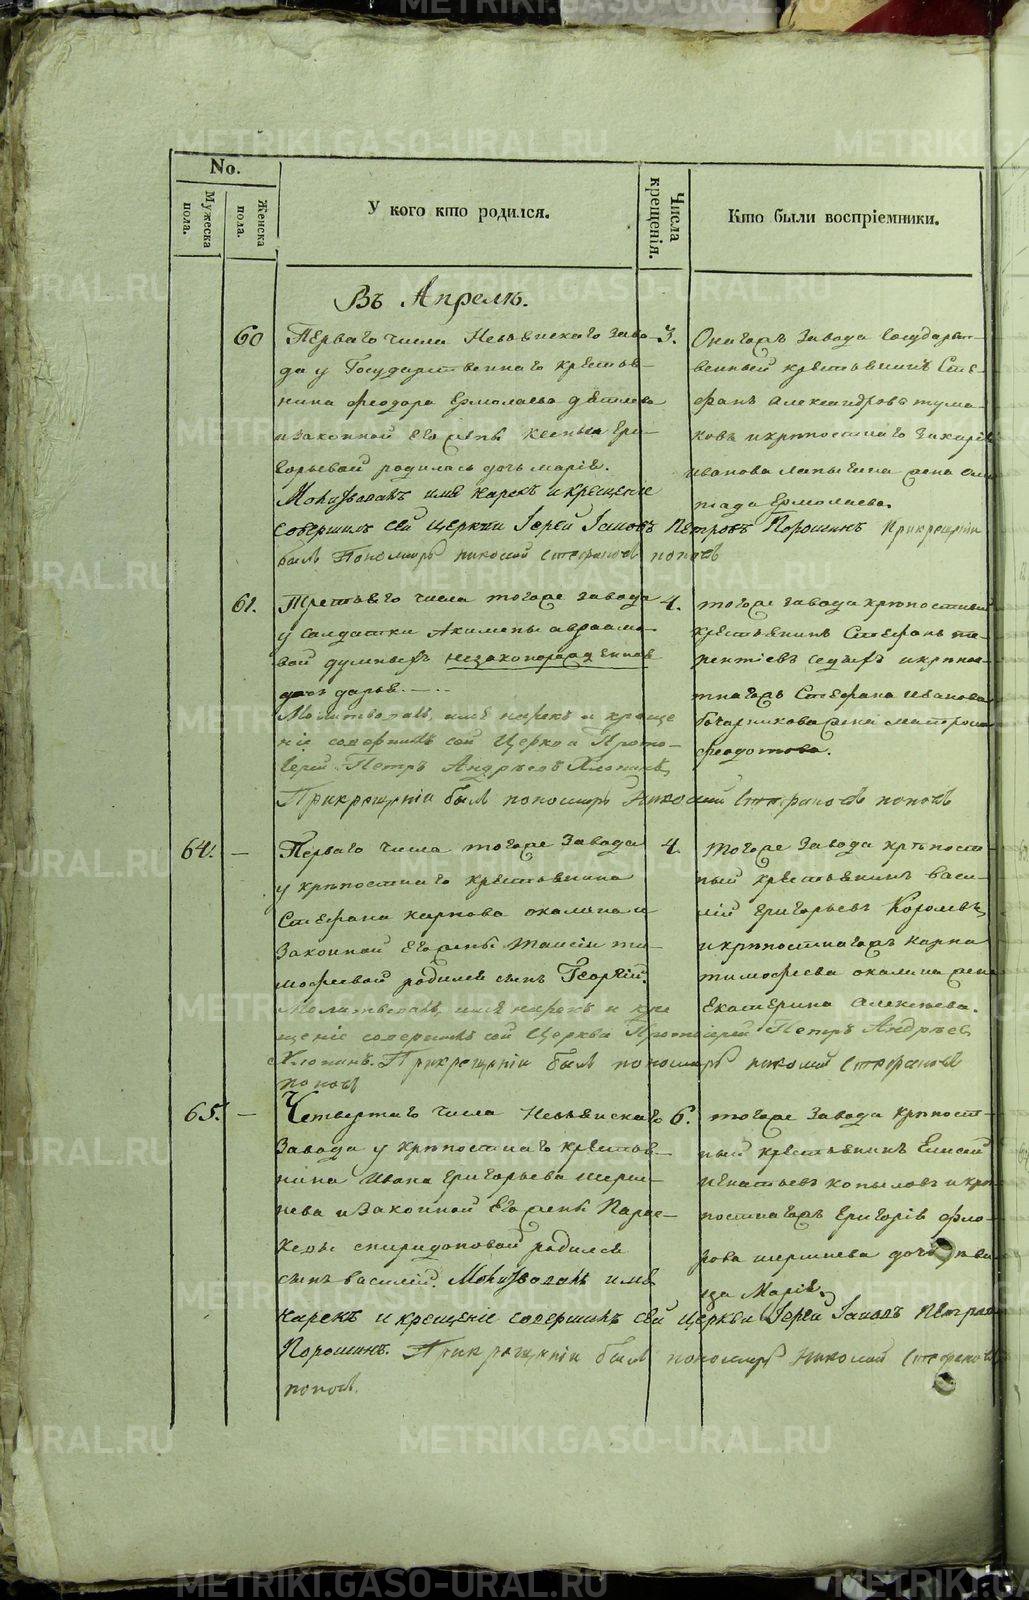 No.
Мужеска пола.
Женска пола.
У кого кто родился.
Числа крещенія.
Кто были воспріемники.
Въ Апрелѣ.
60
Перваго числа Невьянскаго заво-
да у Государственнаго крестья-
нина Феодора Ермолаева
и законной его жены Ксеньи Гри-
горьевой родилась дочь Марія.
Молитвовалъ имя нарекъ и крещеніе
совершилъ сей церкви Іерей Іаковъ Петровъ Порошинъ При крещеніи
былъ Пономарь Николай Стефановъ Поповъ
3.
Онагожъ завода Государст-
венный крестьянинъ Сте-
фанъ Александровъ Тума-
ковъ и крѣпостнаго Захаріи
Иванова Лапычина жена
Ермолаева.
61.
Третьяго числа тогоже завода
у солдатки Акилены Авраамо-
вой незаконорожденная
дочь Дарья.
Молитвовалъ, имя нарекъ и креще
ніе совершилъ сей Церкви Прото-
іерей Петръ Андреевъ Хлопинъ,
При крещеніи былъ пономарь Николай Стефановъ Поповъ
4.
тогоже завода крѣпостный
крестьянинъ Стефанъ Те-
рентіевъ Седыхъ и крѣпос-
тнагожъ Стефана Иванова
Бочарникова жена Матрона
Федотова.
64.
—
Перваго числа тогоже завода
у крѣпостнаго крестьянина
Стефана Карпова Окалина и
законной его жены Таисіи Ти-
мофеевой родился сынъ Георгій.
Молитвовалъ, имя нарекъ и кре
щеніе совершилъ сей Церкви Протоіерей Петръ Андреевъ
Хлопинъ. При крещеніи былъ пономарь Николай Стефановъ
Поповъ
4.
тогоже завода крѣпост-
ный крестьянинъ Васи-
лій Григорьевъ Королевъ,
и крѣпостнагожъ Карпа
Тимофеева Окалина жена
Екатерина Алексѣева.
65.
—
Четвертаго числа Невьянскаго
завода у крѣпостнаго крестья-
нина Ивана Григорьева Шерш-
нева и законной его жены Парас-
кевы Спиридоновой родился
сынъ Василій. Молитвовалъ имя
нарекъ и крещеніе совершилъ сей церкви Іерей Іаковъ Петровъ
Порошинъ. При крещеніи былъ пономарь Николай Стефановъ
Поповъ.
6.
тогоже завода крѣпост-
ный крестьянинъ Елисей
Игнатьевъ Копыловъ и крѣ
постнагожъ Григорія Фло-
рова Шершнева дочь дѣви
ца Марія.
METRIKI.GASO-URAL.RU